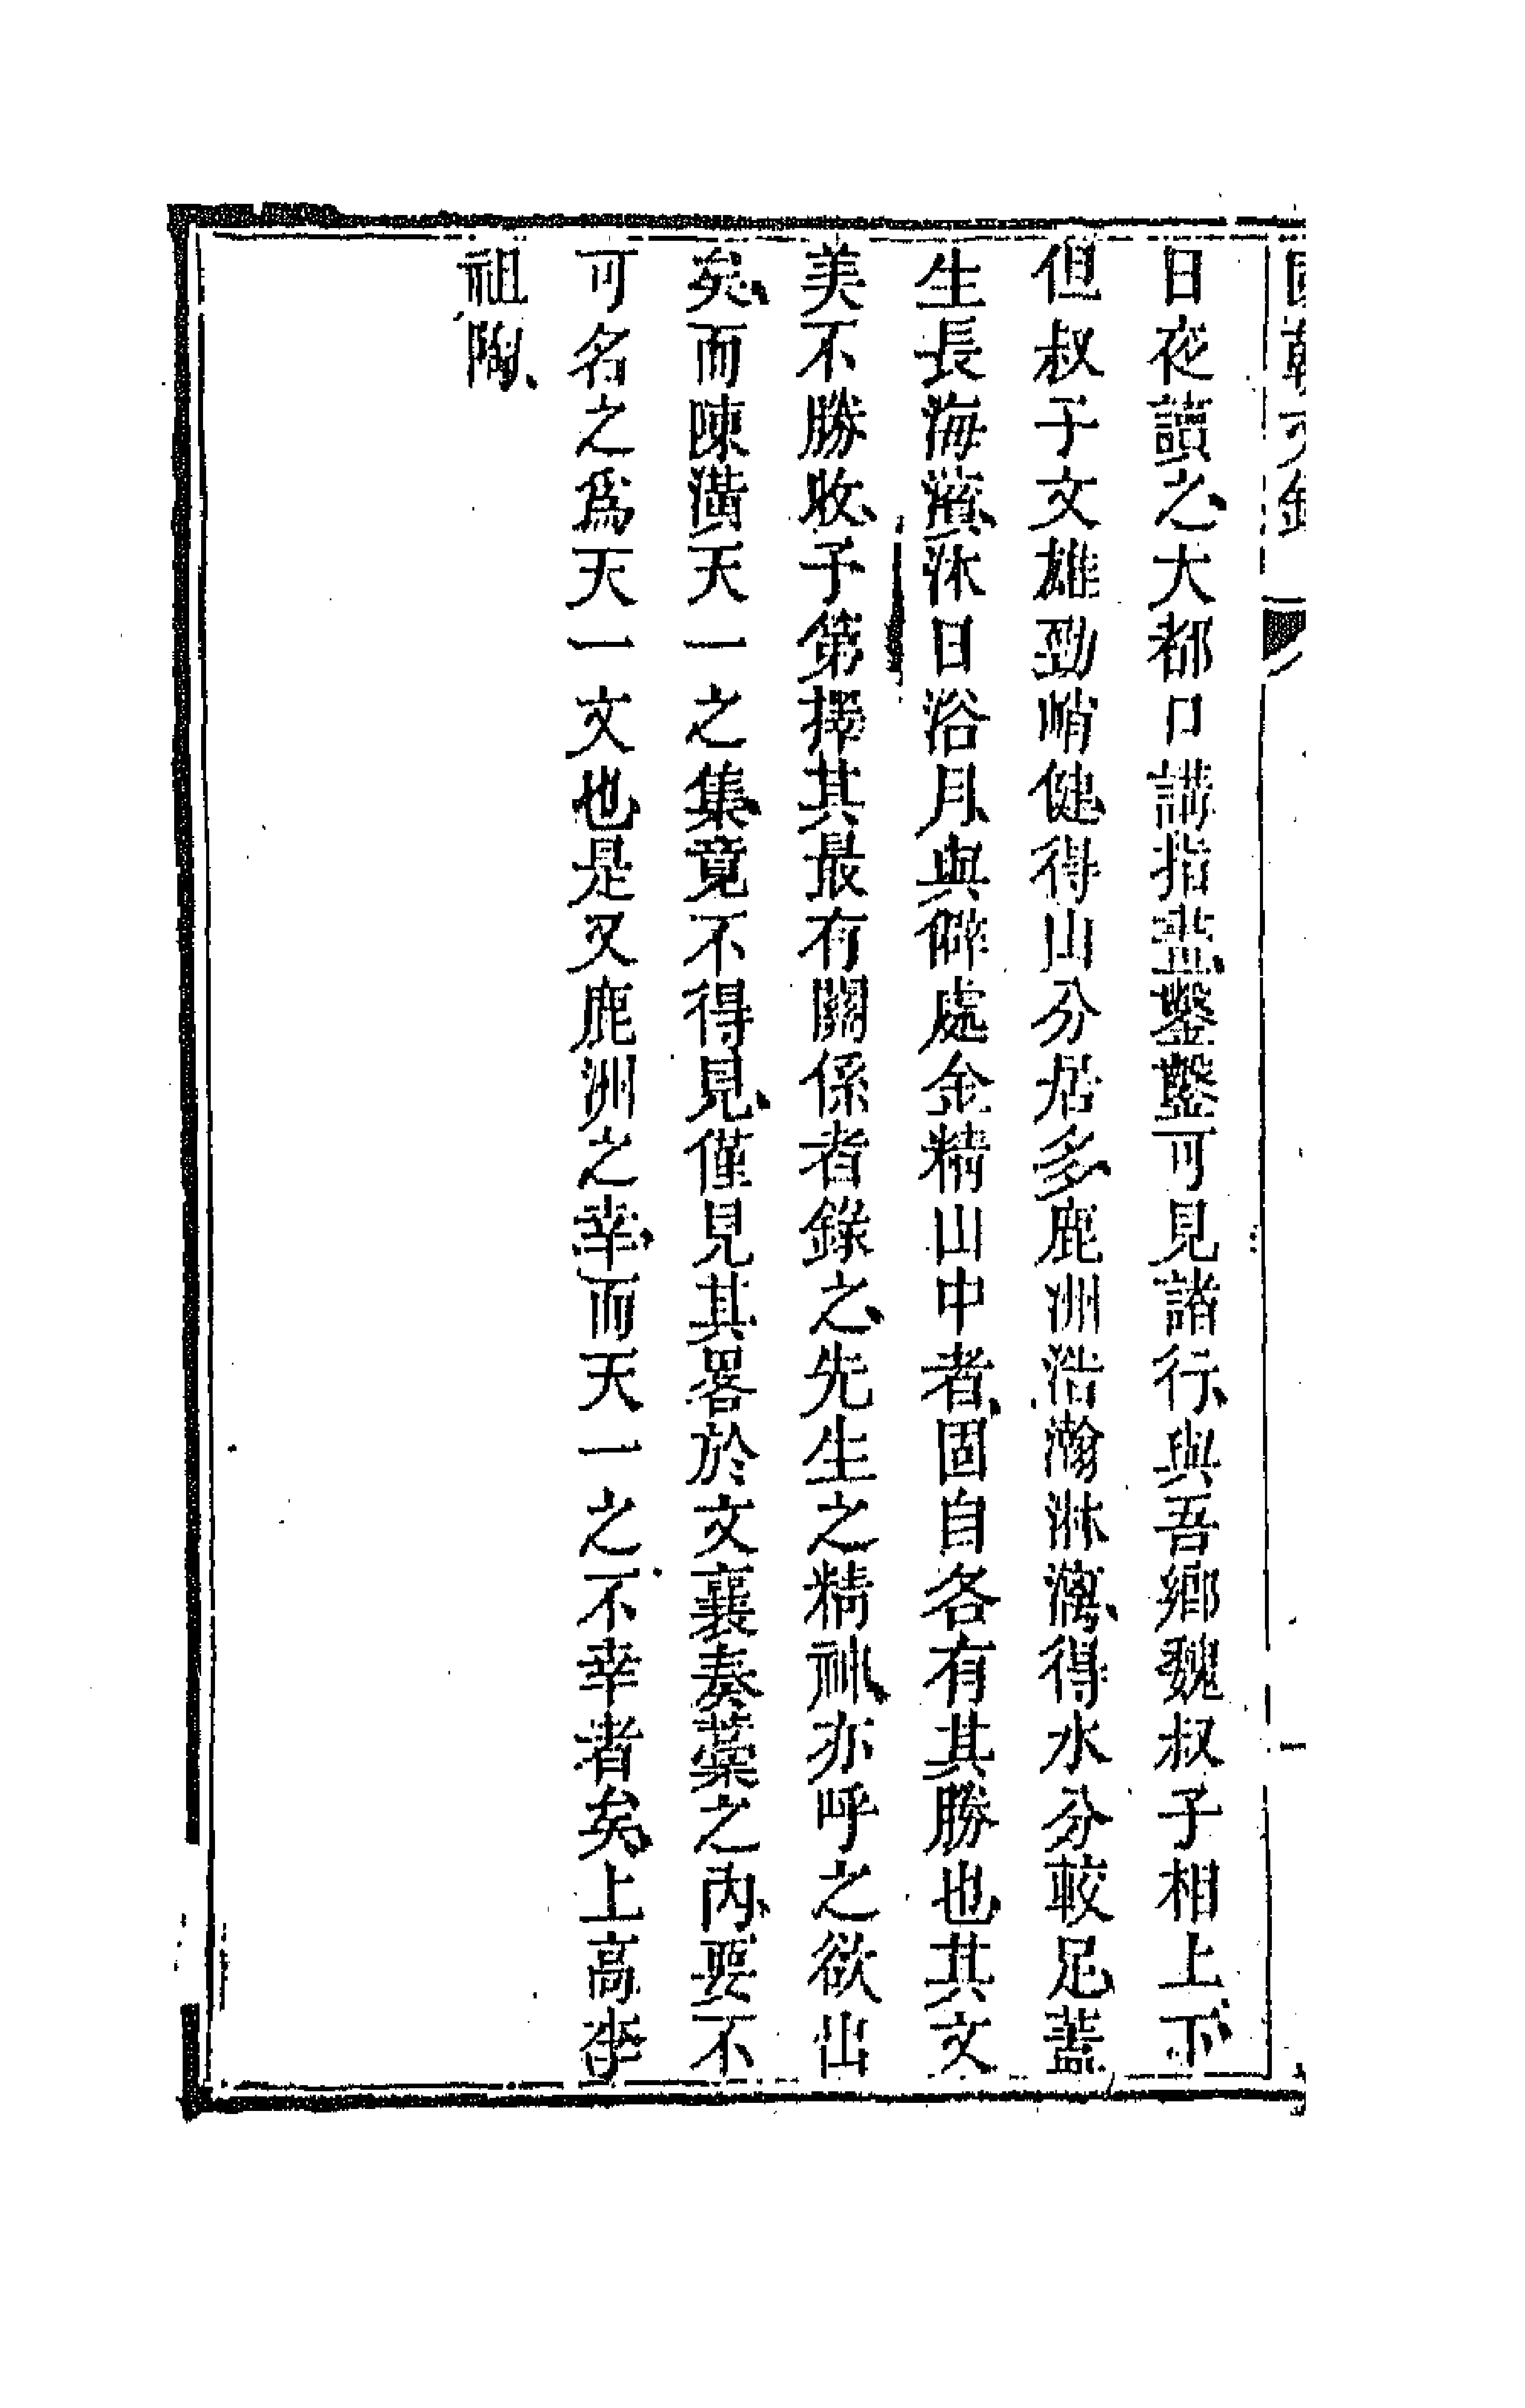 國朝文錄 一
日夜讀之、大都口講指畫、鑿鑿可見諸行、與吾鄉魏叔子相上下、
但叔子文雄勁峭健、得山分居多、鹿洲浩瀚淋漓、得水分較足、蓋
生長海濱、沐日浴月、與僻處金精山中者、固自各有其勝也、其文
美不勝收、予第擇其最有關係者錄之、先生之精神、亦呼之欲出
矣、而陳潢天一之集、竟不得見、僅見其畧於文襄奏藳之內、要不
可名之爲天一文也、是又鹿洲之幸、而天一之不幸者矣、上高李
祖陶、